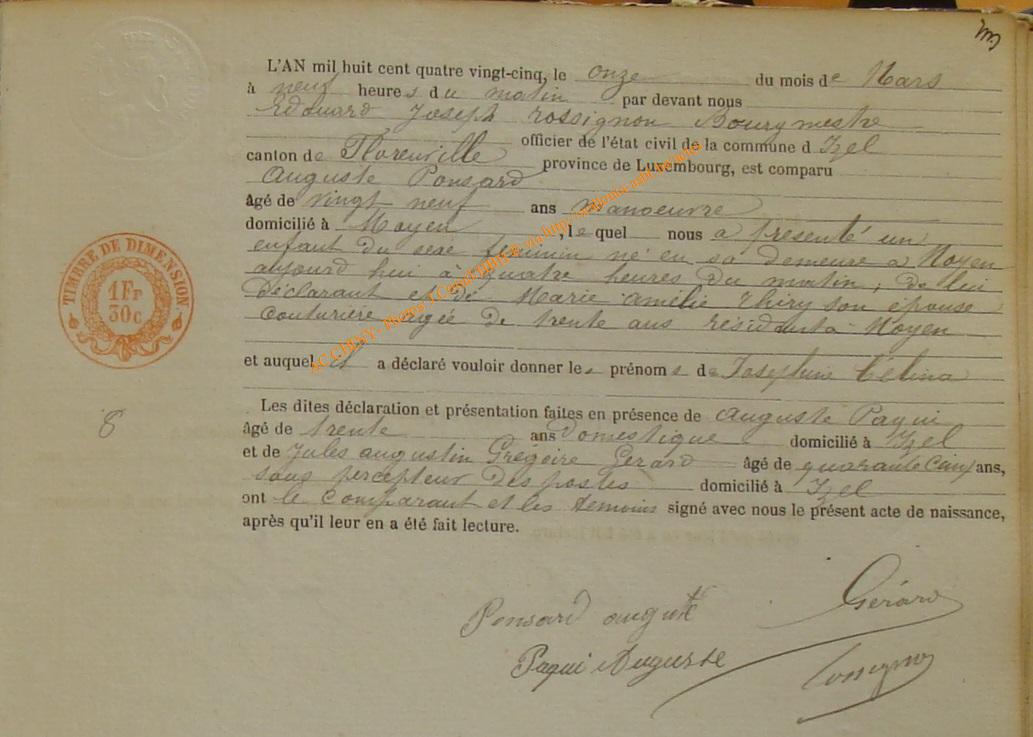 L'AN mil huit cent quatre vingt-cinq, le onze du mois de Mars
à neuf heures du matin par devant nous
Edouard Joseph Rossignon Bourgmestre
officier de l'état civil de la commune d Izel
canton de Florenville province de Luxembourg, est comparu
Auguste Ponsard
âgé de vingt neuf ans manoeuvre
domicilié à Moyen, lequel nous a présenté un
enfant du sexe féminin né en sa demeure à Moyen
aujourd hui à quatre heures du matin, de lui
déclarant et de Marie Amélie Thiry son épouse
couturière agée de trente ans résidant à Moyen
et auquel il a déclaré vouloir donner les prénoms de Joséphine Célina
Les dites déclaration et présentation faites en présence de Auguste Paqui
âgé de trente ans Domestique domicilié à Izel
et de Jules Augustin Grégoire Gerard âgé de quarante cinq ans,
sous percepteur des postes domicilié à Izel
ont le Comparant et les témoins signé avec nous le présent acte de naissance,
après qu'il leur en a été fait lecture.
Ponsard auguste
Gérard
Paqui Auguste
Rossignon
TIMBRE DE DIMENSION
1 Fr
30 c
8